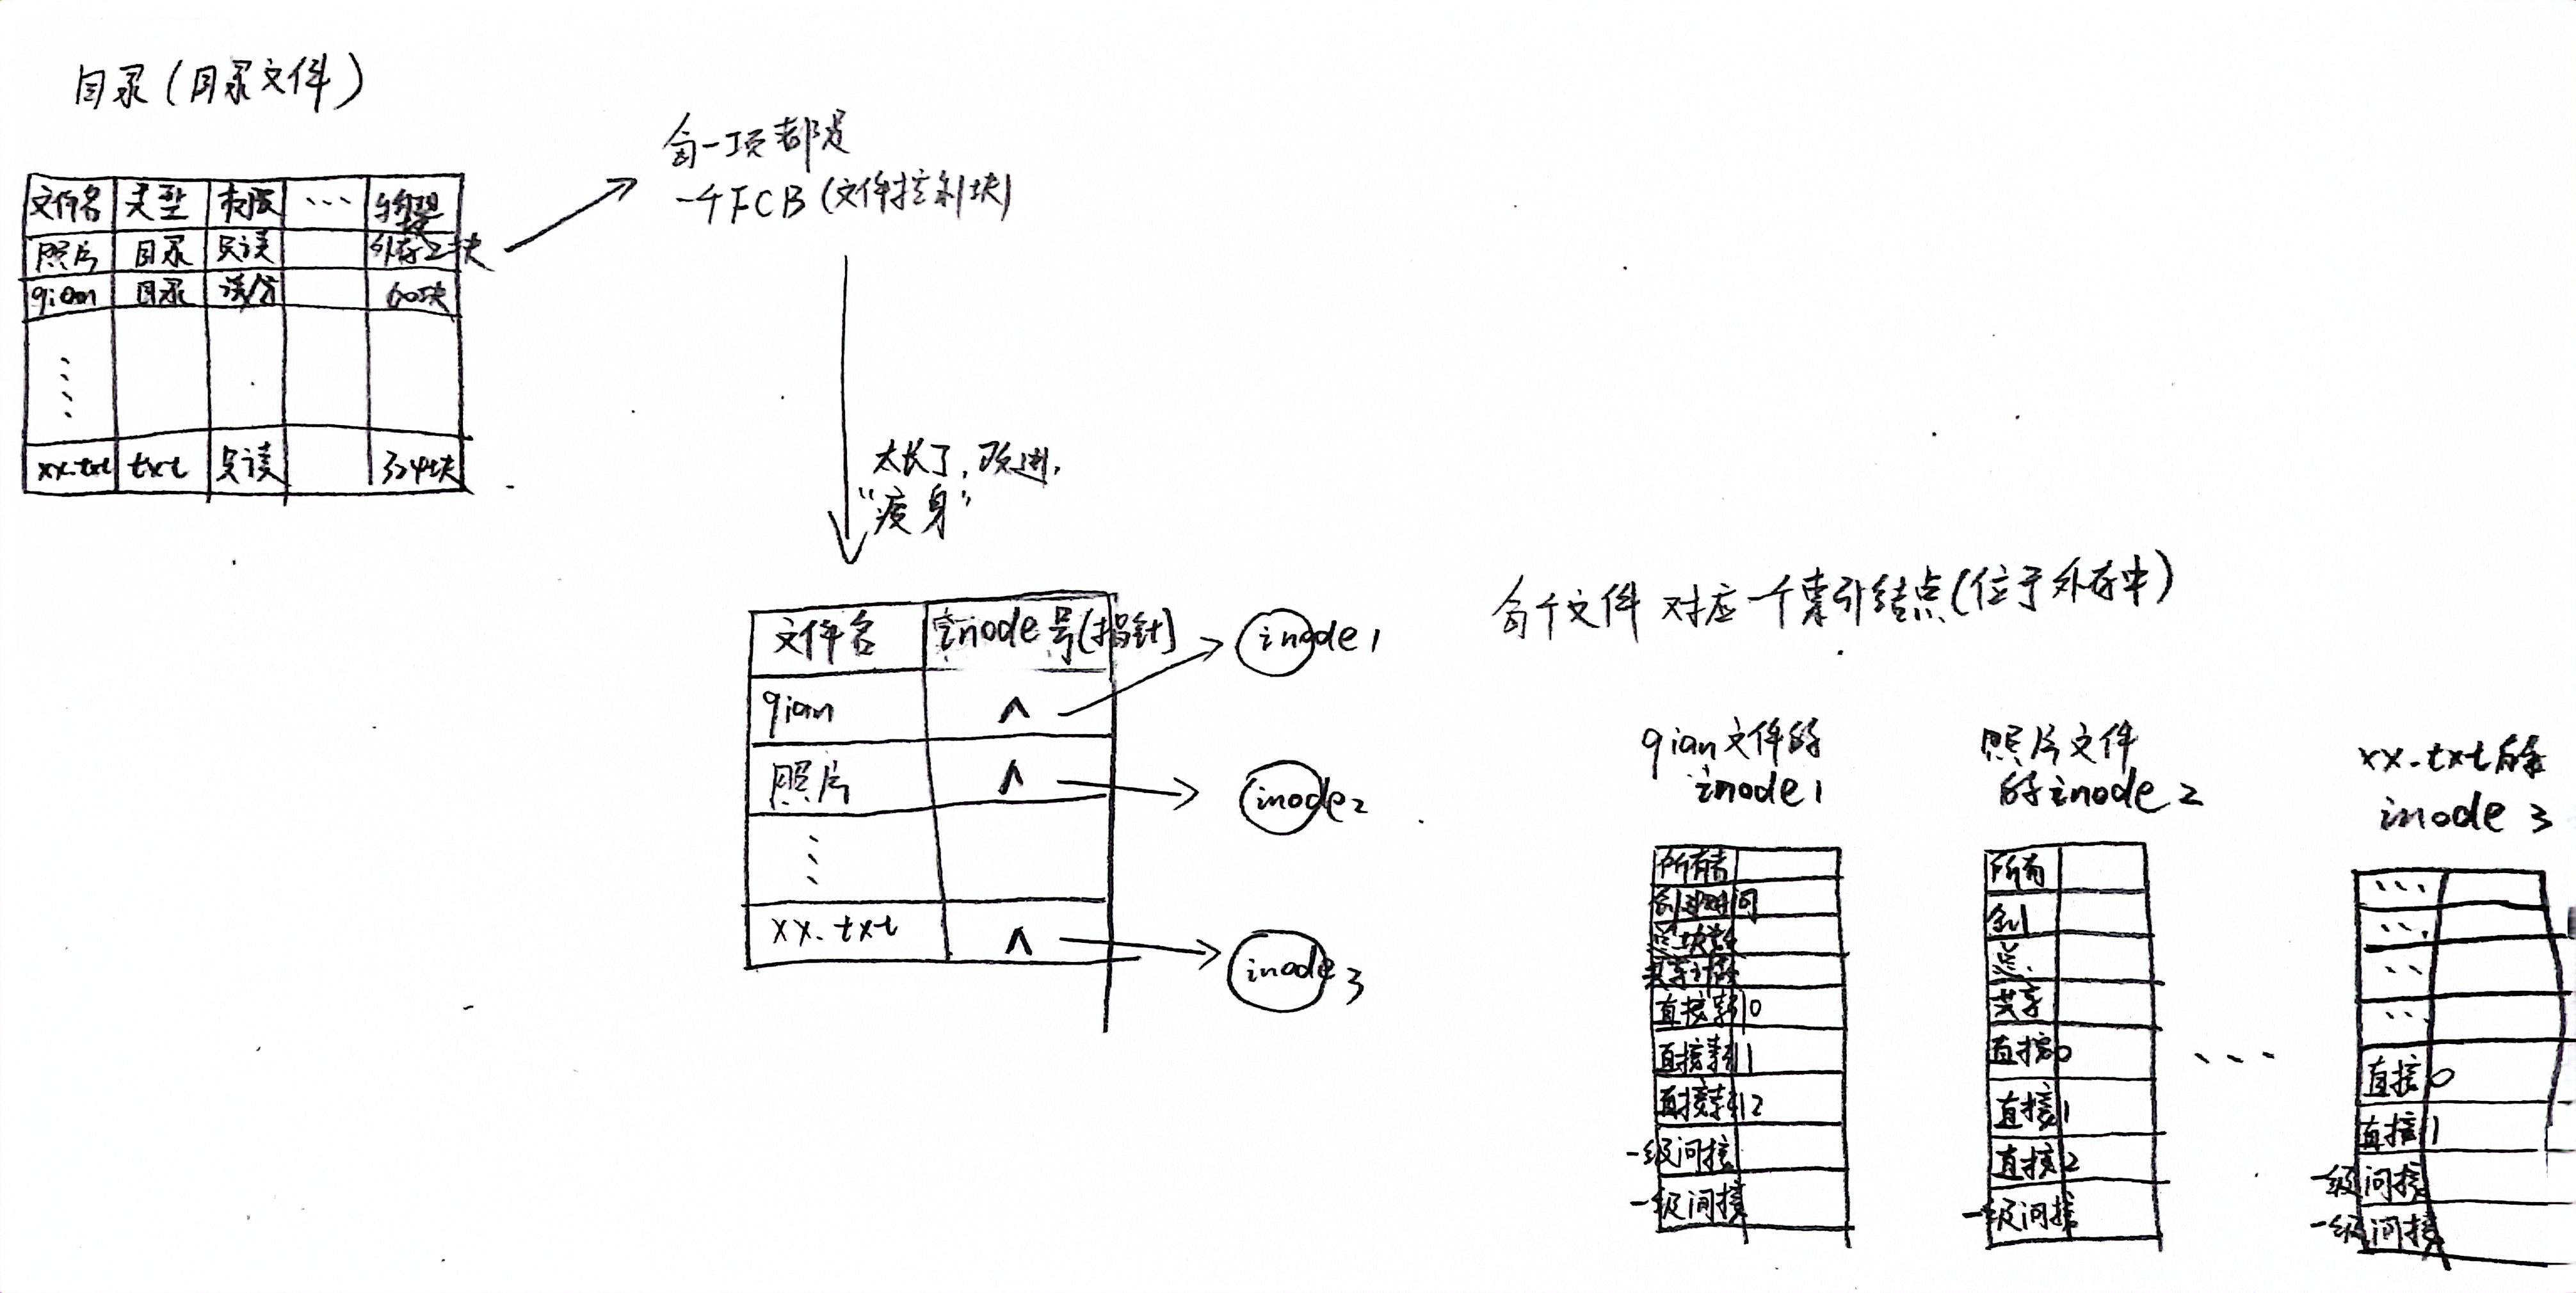 目录(目录文件)
文件名 类型 权限 ... 物理
照片 目录 只读 外存2块
qian 目录 读/写 60块
xx.txt txt 只读 324块
每一项都是
一个FCB(文件控制块)
太长了,改进,
"瘦身"
文件名 inode号(指针)
qian ∧
照片 ∧
xx.txt ∧
inode1
inode2
inode3
每个文件 对应一个索引结点(位于外存中)
qian文件的
inode1
所有者
创建时间
总块数
共享计数
直接索引0
直接索引1
直接索引2
一级间接
一级间接
照片文件
的inode2
所有
创
总.
共享
直接0
直接1
直接2
一级间接
...
xx.txt的
inode3
...
...
...
...
直接0
直接1
一级间接
一级间接